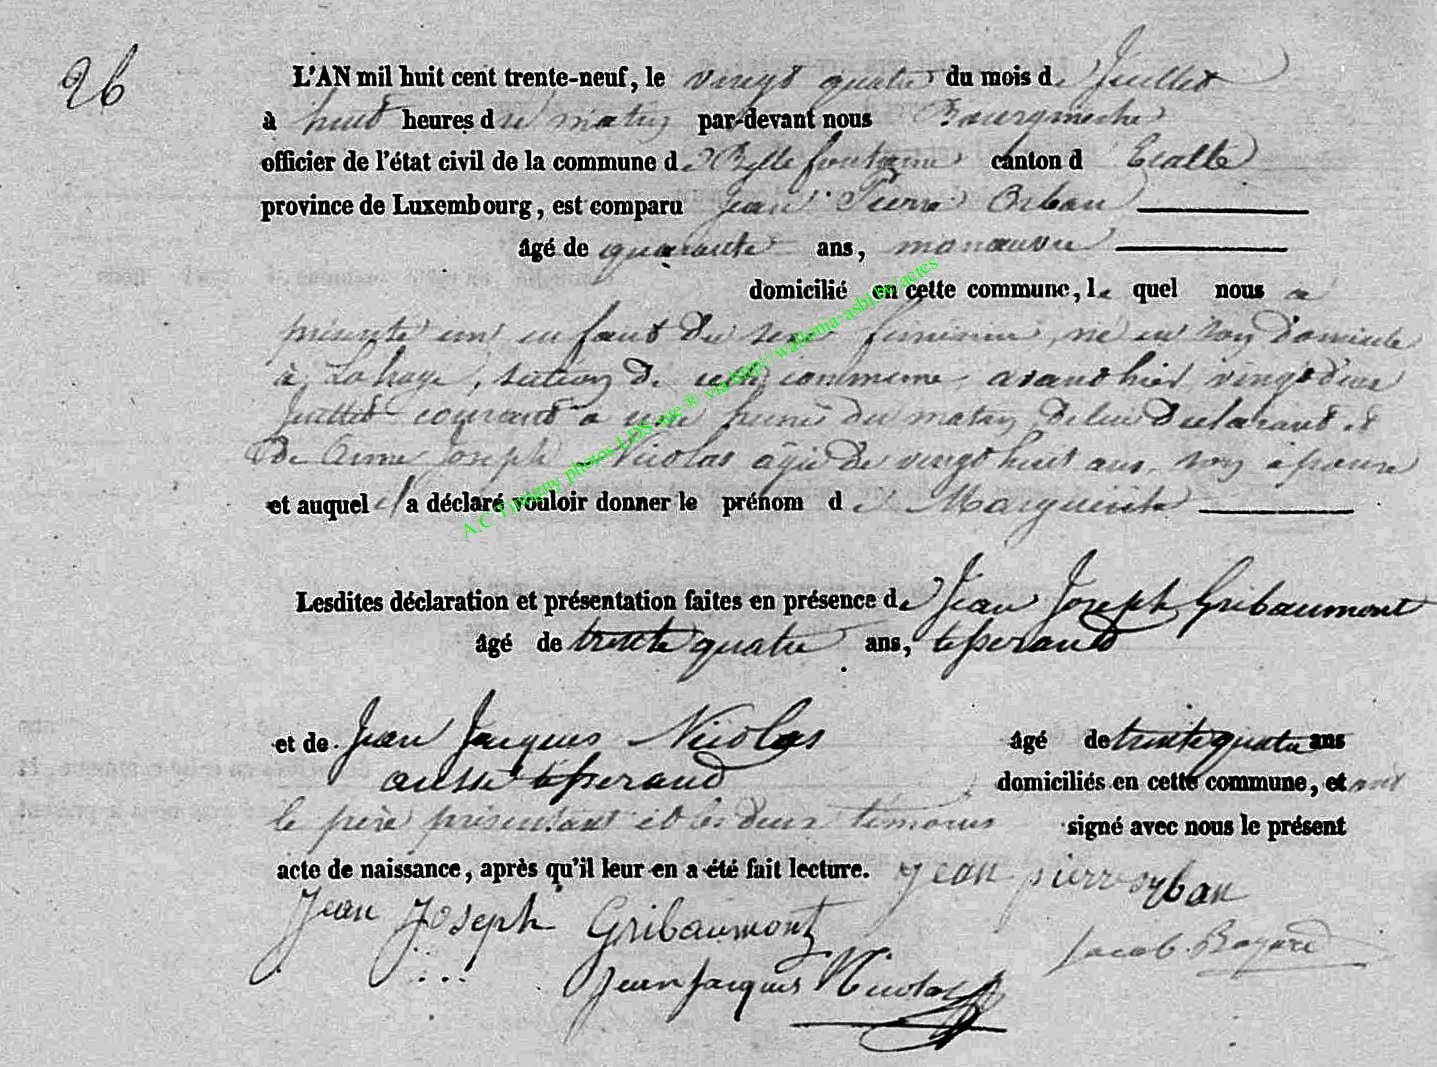 26
L'AN mil huit cent trente-neuf, le vingt quatre du mois de Juillet
à huit heures du matin par-devant nous Bourgmestre
officier de l'état civil de la commune de Bellefontaine canton d Etalle
province de Luxembourg, est comparu Jean Pierre Orban
âgé de quarante ans, manœuvre
domicilié en cette commune, le quel nous a
présenté un enfant du sexe féminin, né en son domicile
à Lahage, section de cette commune, avant hier vingt deux
Juillet courant à une heure du matin, de lui déclarant et
de Anne Joseph Nicolas âgée de vingt huit ans, son épouse
et auquel il a déclaré vouloir donner le prénom de Marguerite
Lesdites déclaration et présentation faites en présence de Jean Joseph Gribaumont
âgé de trente quatre ans, tisserand
et de Jean Jacques Nicolas âgé de trente quatre ans
aussi tisserand domiciliés en cette commune, et ont
le père présentant et les deux témoins signé avec nous le présent
acte de naissance, après qu'il leur en a été fait lecture. Jean pierre orban
Jean Joseph Gribaumont
Jacob. Bayard
Jean Jacques Nicolas
A.C. Tintigny photos LDS sue ® via http://wallonia-asbl.be/actes